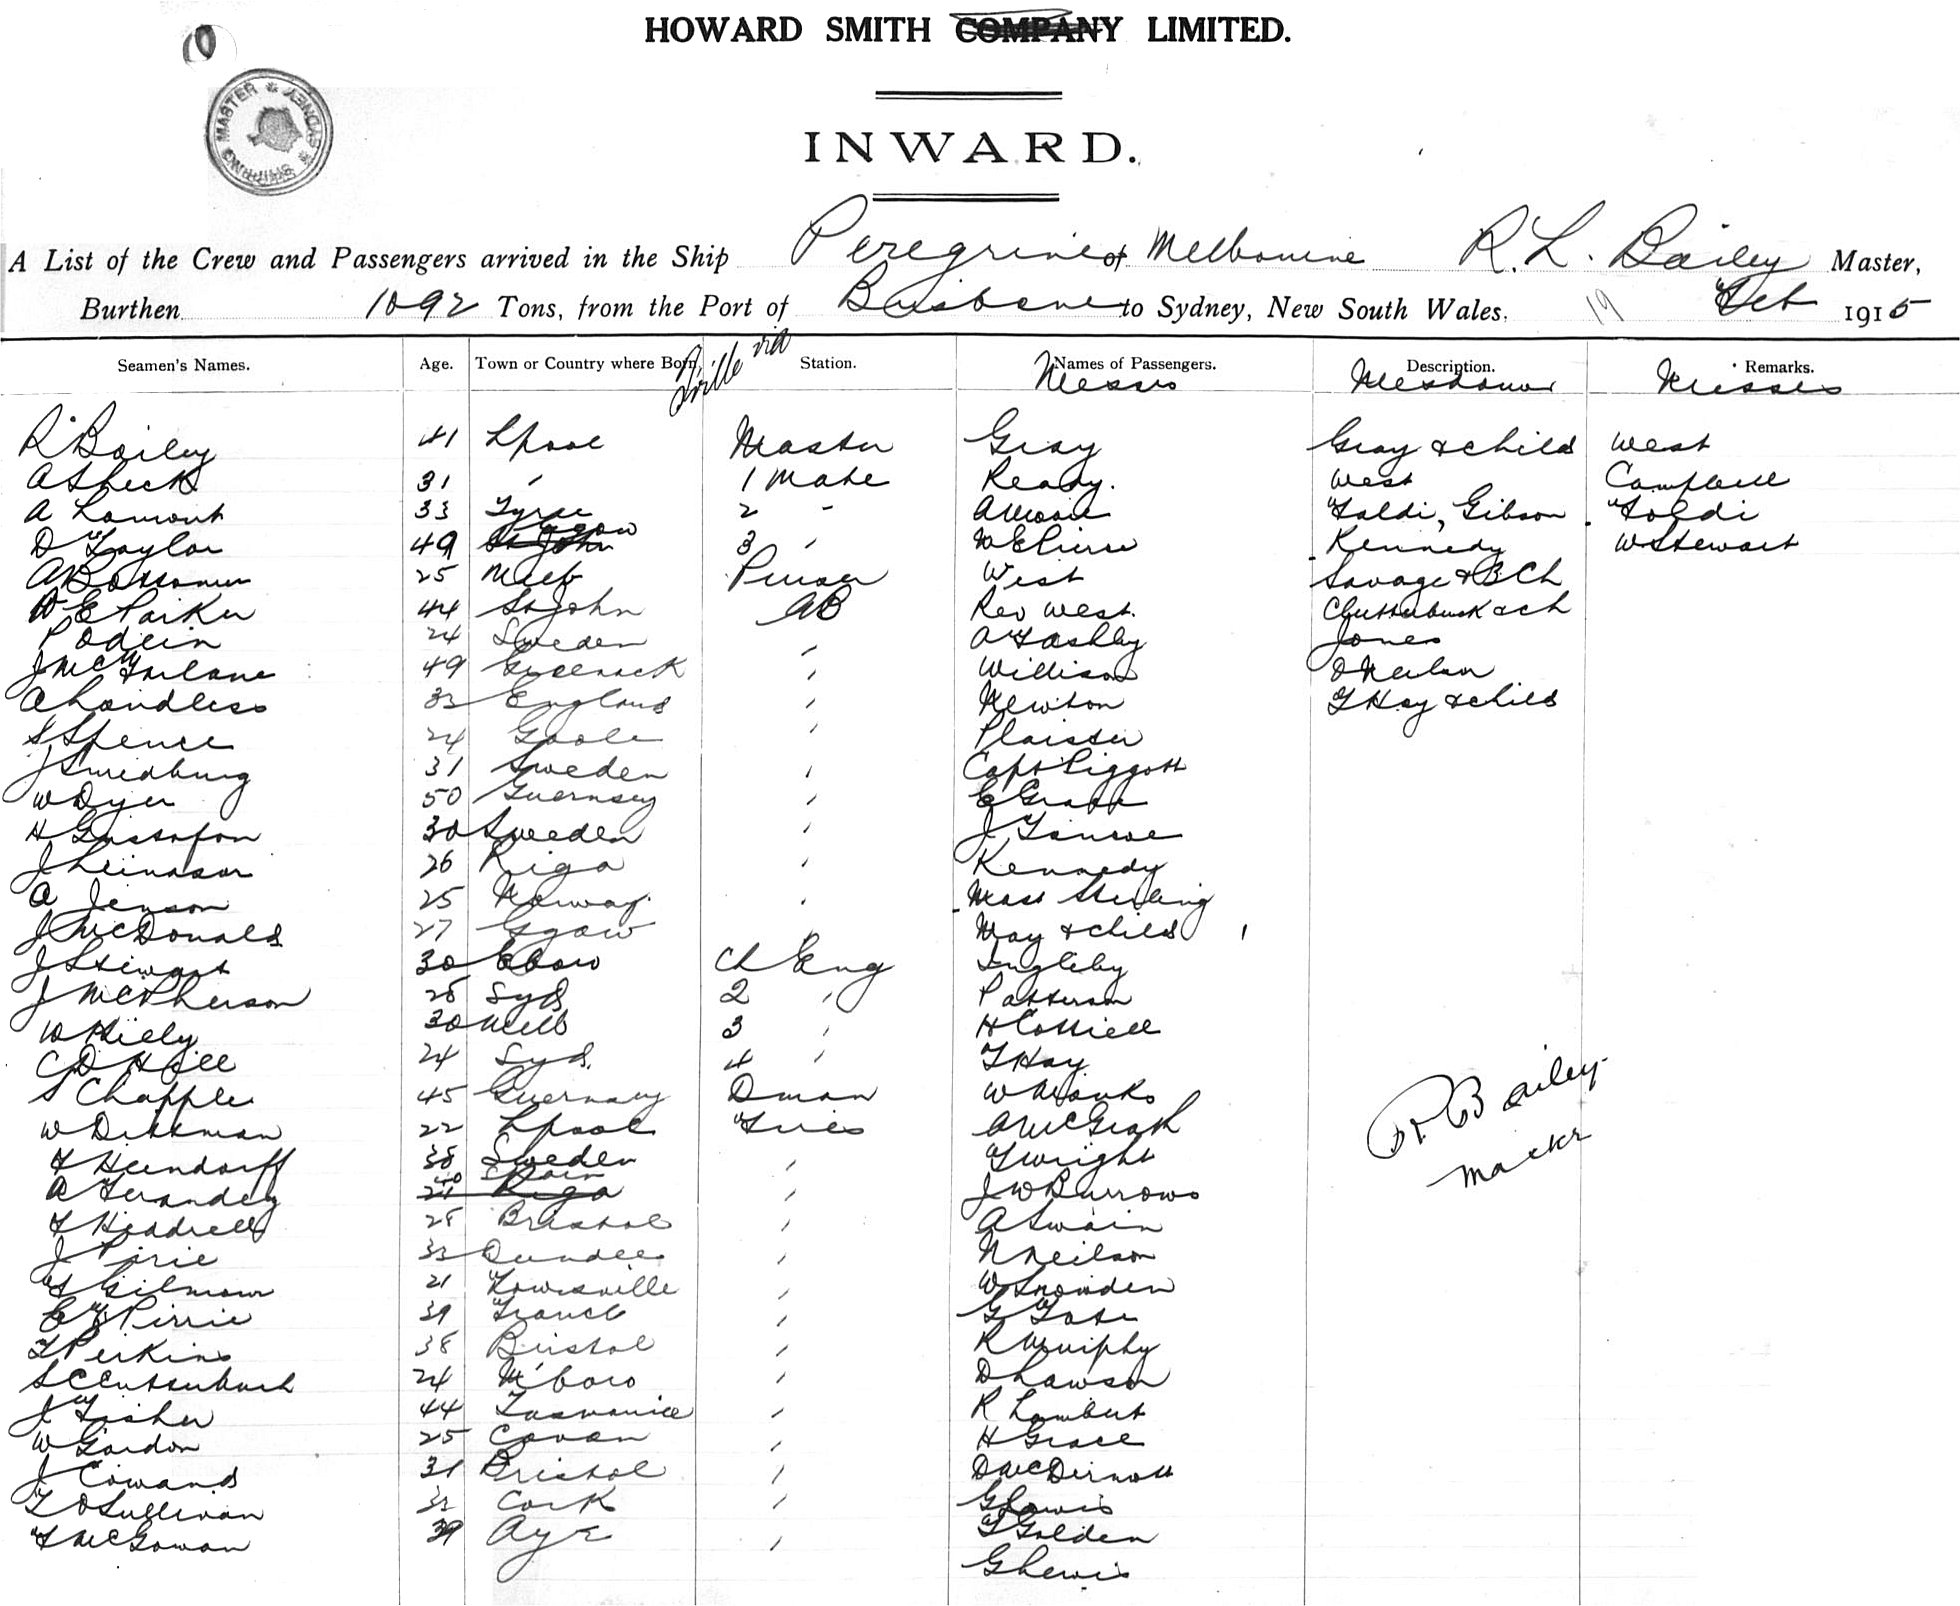 HOWARD SMITH COMPANY LIMITED.
SHIPPING MASTER SYDNEY
INWARD.
A List of the Crew and Passengers arrived in the Ship Peregrine of Melbourne R. L. Bailey Master,
Burthen 1092 Tons, from the Port of Brisbane to Sydney, New South Wales. 19 Feb 1915
via
Seamen's Names. Age. Town or Country where Born. Station. Names of Passengers. Description. Remarks.
Messrs Mesdames Misses
R Bailey 41 Lpool Master Gray Gray & child West
A Sheck 31 " 1 Mate Ready. West Campbell
A Lamont 33 Tyree 2 " Gibson
D Taylor 49 St John 3 " Kennedy W Stewart
25 Melb Purser West Savage & 3 Ch
W E Parker 44 St John AB Rev West. Clutterbuck & ch
P Odein 24 Sweden " A T Ashby Jones
J McFarlane 49 Greenock " Willison O'Neilon
A Chandless 32 England " Newton T Hay & child
S Spence 24 Goole " Plaister
J Smedburg 31 Sweden " Capt Piggott
W Dyer 50 Guernsey "
H Gustafson 30 Sweden " J
J Leinasar 26 Riga " Kennedy
A Jenson 25 Norway. " Mast Sterling
J McDonald 27 Ggow " May & child
J Stewart 30 Ch Eng Ingleby
J McPherson 28 Syd 2 " Patterson
W Hiely 30 Melb 3 " H Cottrell
C D Hill 24 Syd. 4 " T Hay
S Chapple 45 Guernsey Dman W Monks
W Dittman 22 Lpool Fires A McGrath
F Heindorff 38 Sweden " T Wright
A Fernandez 40 Spain 21 Riga " J W Burrows
F Headrell 28 Bristol " A Swain
J Pirie 33 Dundee " N Neilson
Gilmour 21 Townsville " W Snowden
E F Pirrie 39 France " G Tate
T Perkins 38 Bristol " R Murphy
S Clutterbuck 24 M'boro " D Lawson
J Fisher 44 Tasmania " R Lambert
W Gordon 25 Cavan " H Grace
J Cowand 31 Bristol " D McDermott
T O Sullivan 32 Cork " G Lewis
F McGowan 39 Ayr " T Golden
G Lewis
R. Bailey
Master